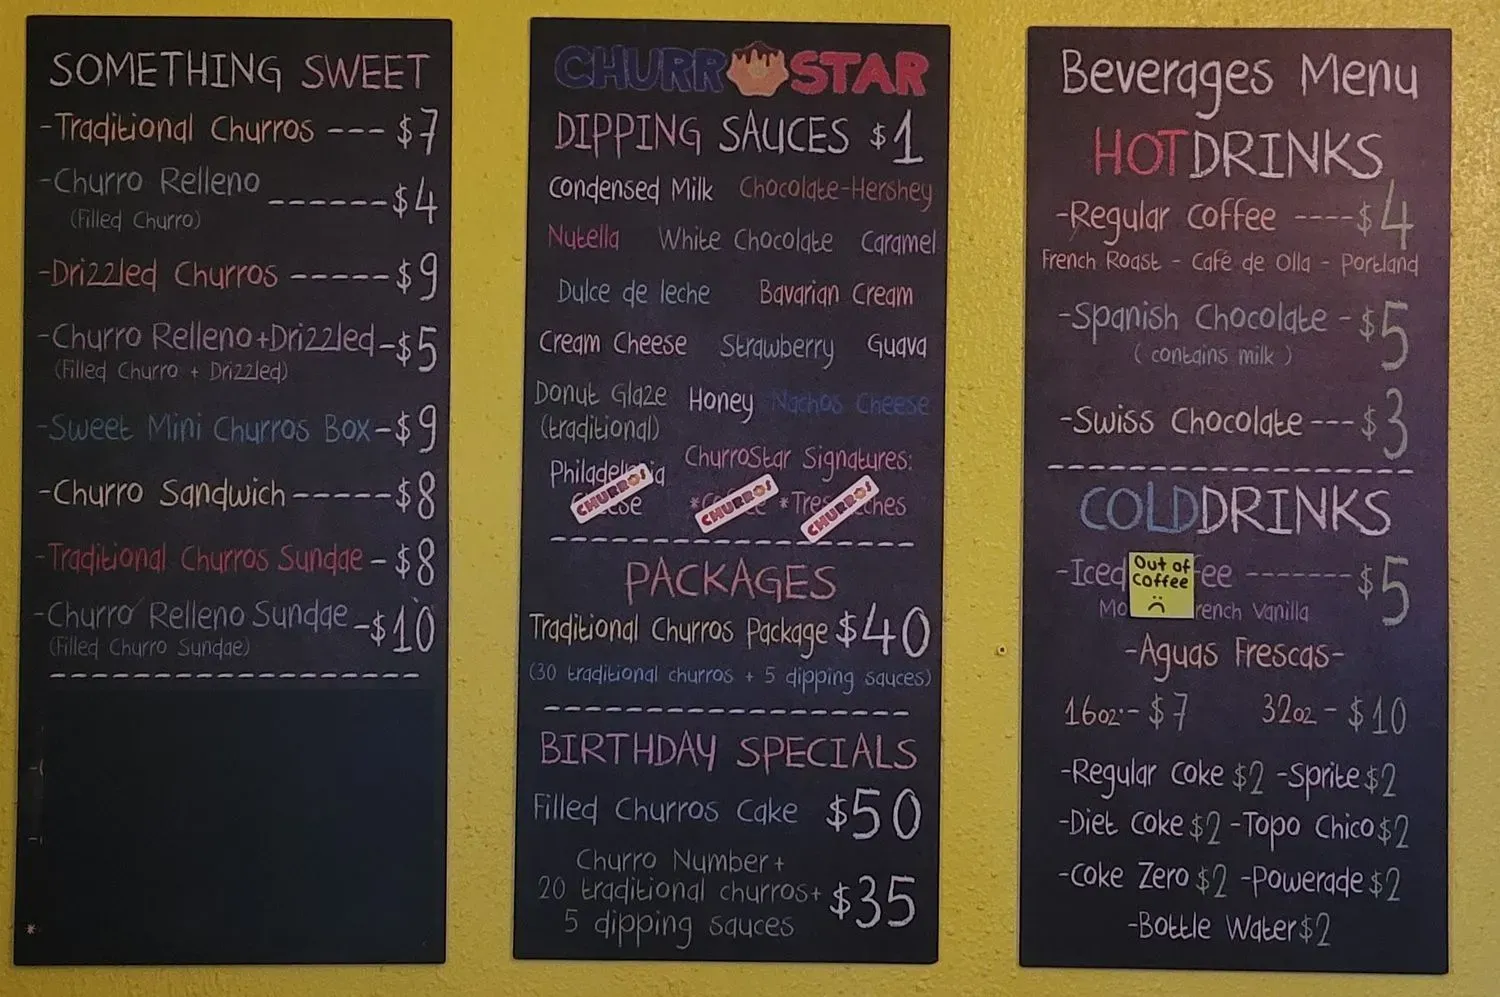 SOMETHING SWEET
-Traditional Churros --- $7
-Churro Relleno ------ $4
(Filled Churro)
-Drizzled Churros ----- $9
-Churro Relleno+Drizzled-$5
(Filled Churro + Drizzled)
-Sweet Mini Churros Box-$9
-Churro Sandwich-----$8
-Traditional Churros Sundae-$8
-Churro Relleno Sundae-$10
(Filled Churro Sundae)
CHURR STAR
DIPPING SAUCES $1
Condensed Milk Chocolate-Hershey
Nutella White Chocolate Caramel
Dulce de leche Bavarian Cream
Cream Cheese Strawberry Guava
Donut Glaze Honey Nachos Cheese
(traditional)
ChurroStar Signatures:
CHURROS
CHURROS
CHURROS
PACKAGES
Traditional Churros Package $40
(30 traditional churros + 5 dipping sauces)
BIRTHDAY SPECIALS
Filled Churros Cake $50
Churro Number+
20 traditional churros+ $35
5 dipping sauces
Beverages Menu
HOT DRINKS
-Regular Coffee ----$4
French Roast - Café de Olla - Portland
-Spanish Chocolate -$5
(contains milk)
-Swiss Chocolate ---$3
COLD DRINKS
-Iced ------- $5
Out of
Coffee
Vanilla
-Aguas Frescas-
16oz.- $7 32oz - $10
-Regular Coke $2 -Sprite $2
-Diet Coke $2 -Topo Chico $2
-Coke Zero $2 -Powerade $2
-Bottle Water $2